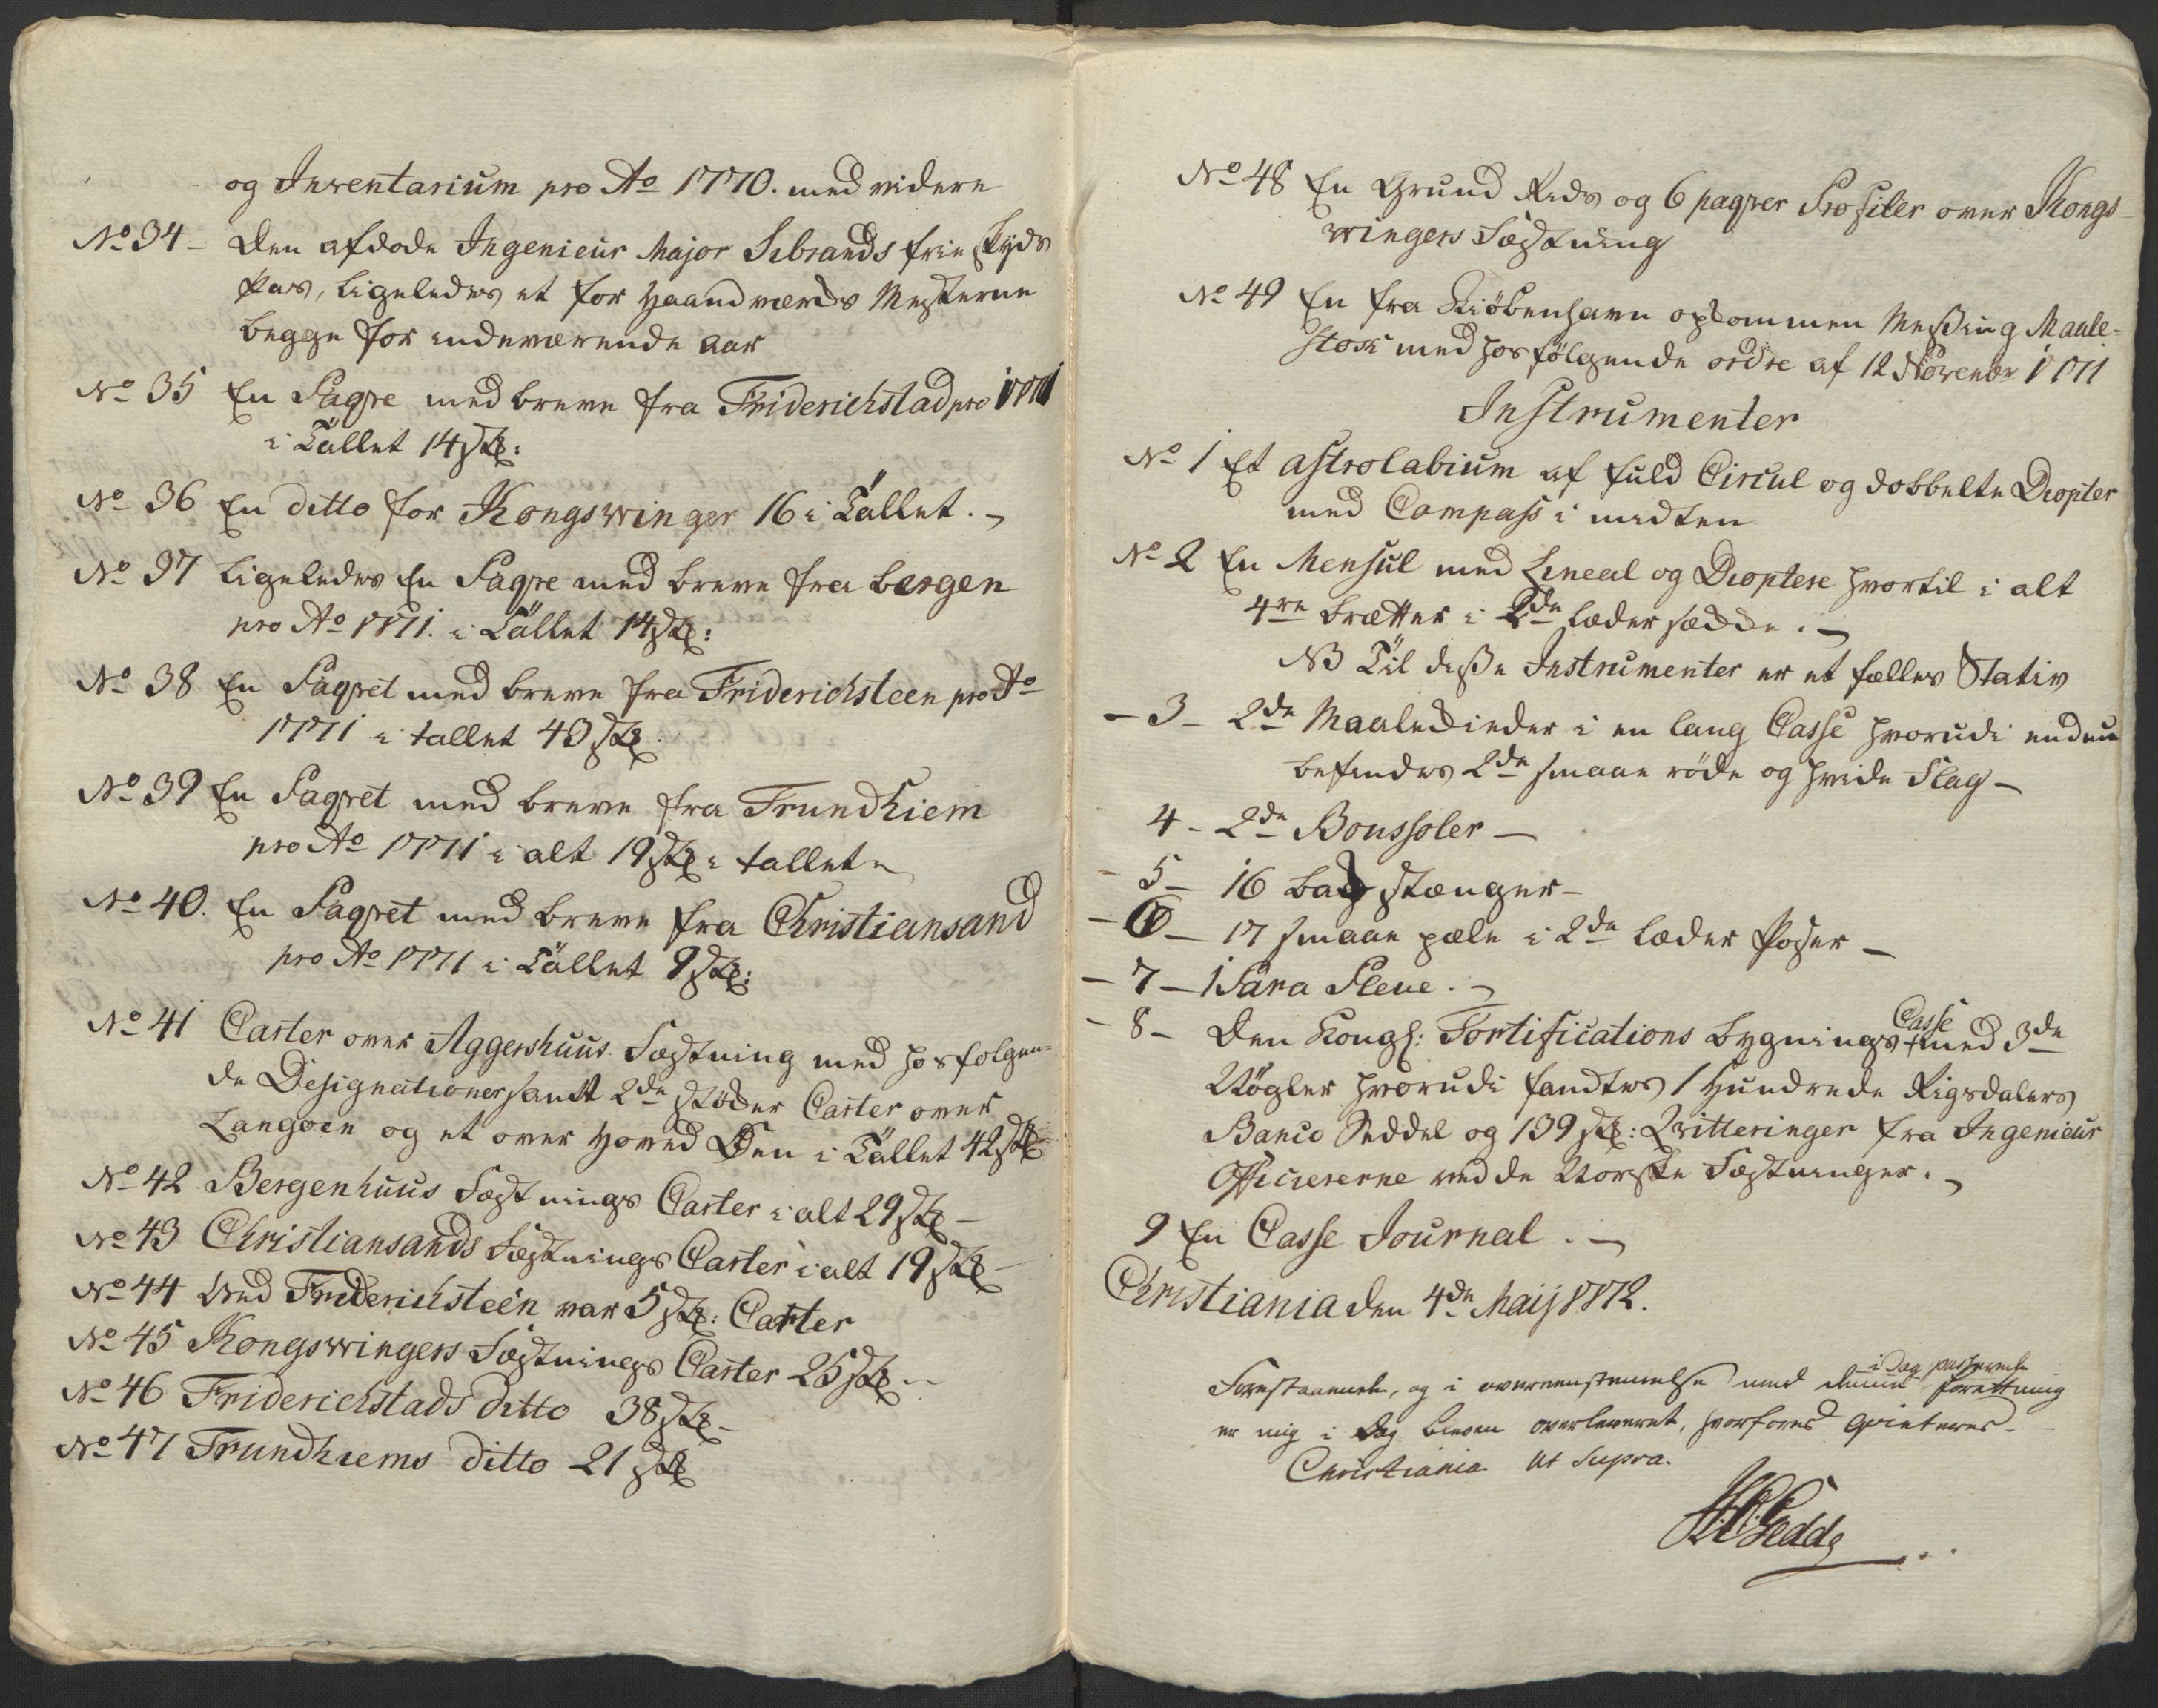 og Inventarium pro Ao 1770. med videre
No 34 - Den afdøde Ingenieur Major Sibrands frie Skyds
Pas, ligeledes et for Haandværcks Mesterne
begge for indeværende aar
No 35 En Paqve med breve fra Friderichstad pro 1771
i Tallet 14 stk:
No 36 En ditto for Kongswinger 16 i Tallet. -
No 37 Ligeledes En Paqve med breve fra bergen
pro Ao 1771. i Tallet 14 stk:
No 38 En Paqvet med breve fra Friderichsteen pro Ao
1771 i tallet 43 stk.
No 39 En Paqvet med breve fra Trundhiem
pro Ao 1771 i alt 19 stk i tallet
No 40. En Paqvet med breve fra Christiansand
pro Ao 1771 i Tallet 9 stk:
No 41 Carter over Aggershuus Fæstning med hosfølgen-
de Designationer samt 2de støder Carter over
Langøen og et over Hoved Øen i Tallet 42 stk
No 42 Bergenhuus Fæstnings Carter i alt 29 stk -
No 43 Christiansands Fæstnings Carter i alt 19 stk -
No 44 Ved Friderichsteen var 5 stk: Carter
No 45 Kongswingers Fæstnings Carter 25 stk -
No 46 Friderichstads ditto 38 stk -
No 47 Trundhiems ditto 21 stk
No 48 En Grund Rids og 6 paqver Profiler over Kongs-
wingers Fæstning
No 49 En fra Kiöbenhavn opkommen Messing Maale-
stok med hosfölgende ordre af 12 Novembr 1771
Instrumenter
No 1 Et astrolabium af fuld Circul og dobbelte Diopter
med Compass i midten
No 2 En Mensul med Lineal og Dioptere hvortil i alt
4re brætter i 2de læder sække. -
NB Til disse Instrumenter er et fælles Stativ
- 3 - 2de Maalekieder i en lang Casse hvorudi endnu
befindes 2de smaae röde og hvide Flag -
4 - 2de Boussoler -
- 5 - 16 bag stænger -
- 6 - 17 smaae pæle i 2de læder Poser -
- 7 - 1 Para Pleue. -
- 8 - Den Kongl: Fortifications bygnings Casse med 3de
Nögler hvorudi fandtes 1 Hundrede Rigsdalers
Banco Seddel og 139 stk: Qvitteringer fra Ingenieur
Officiererne ved de Norske Fæstninger. -
9 En Casse Journal. -
Christiania den 4de Maij 1772.
Forestaaende, og i overeenstemmelse med denne i Dag passerede forrettning
er mig i Dag bleven overleveret, hvorfores qviteres -
Christiania ut Supra.
Gedde